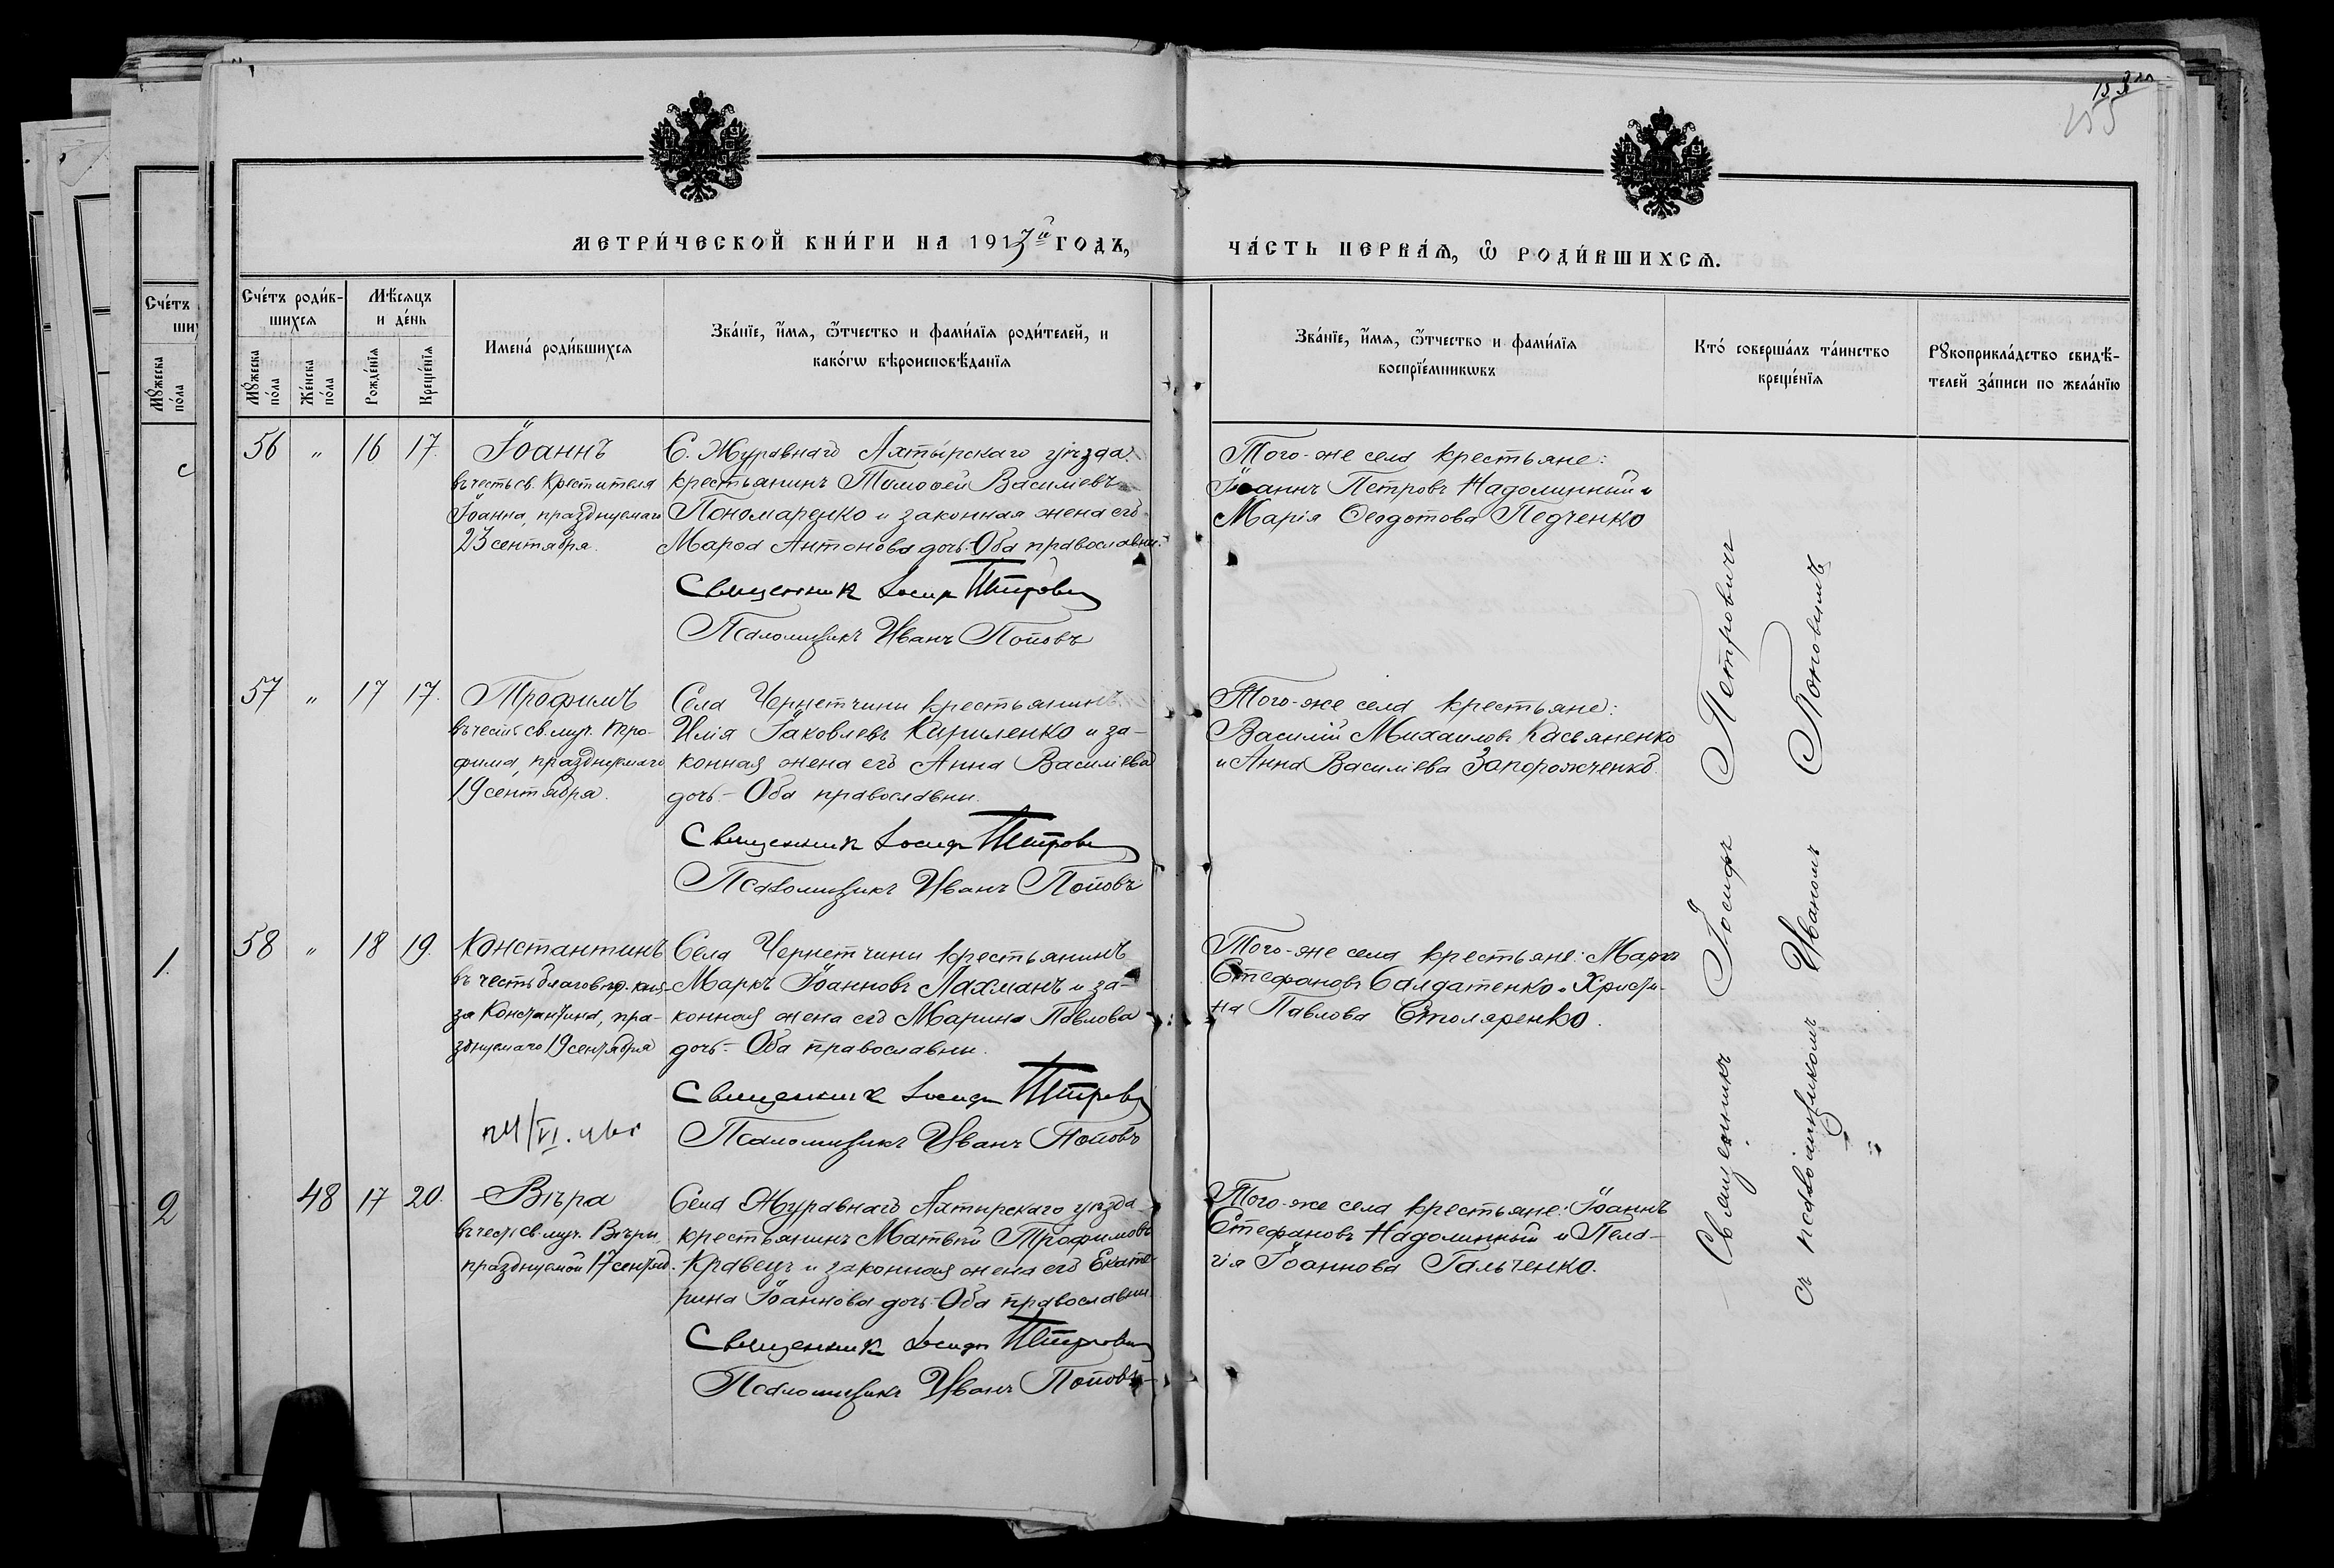 155
МЕТРИ́ЧЕСКОЙ КНИ́ГИ НА 1913й ГОДЪ,
ЧА́СТЬ ПЕРВА́Ѧ, Ѽ РОДИ́ВШИХСѦ.
Сче́тъ роди́в-
шихсѧ
Мѣ́сѧцъ
и де́нь
Мꙋ́жеска
по́ла
Же́нска
по́ла
Рожде́нїѧ
Креще́нїѧ
Имена́ роди́вшихсѧ
Зва́нїе, и́мѧ, ѻ́тчество и фами́лїѧ роди́телей, и
како́гѡ вѣроисповѣ́данїѧ
Зва́нїе, и́мѧ, ѻ́тчество и фами́лїѧ
воспрїе́мникѡвъ
Кто́ соверша́лъ та́инство
креще́нїѧ
Рꙋкоприкла́дство свидѣ́-
телей за́писи по жела́нїю
56 " 16 17.
Іоаннъ
въ честь св. Крестителя
Іоанна, празднуемаго
23 сентября.
С. Журавнаго Ахтырскаго уѣзда
крестьянинъ Тимоѳей Василіевъ
Пономаренко и законная жена его
Марѳа Антонова дочь. Оба православны.
Священник Іосиф Петрович
Псаломщикъ Иванъ Поповъ
Того-же села крестьяне:
Іоаннъ Петровъ Надолинный и
Марія Ѳеодотова Педченко
57 " 17 17.
Трофимъ
въ честь св. муч. Тро-
фима, празднуемаго
19 сентября.
Села Чернетчини крестьянинъ
Илія Іаковлевъ Кириленко и за-
конная жена его Анна Василіева
дочь. – Оба православны.
Священник Іосиф Петрович
Псаломщикъ Иванъ Поповъ
Того-же села крестьяне:
Василій Михаиловъ Касьяненко
и Анна Василіева Запорожченко.
58 " 18 19.
Константинъ
въ честь благовѣр. кня-
зя Константина, пра-
зднуемаго 19 сентября
Села Чернетчини крестьянинъ
Маркъ Іоанновъ Лахманъ и за-
конная жена его Марина Павлова
дочь. – Оба православны.
Священник Іосиф Петрович
Псаломщикъ Иванъ Поповъ
Того-же села крестьяне: Маркъ
Стефановъ Салдатенко и Христи-
на Павлова Столяренко.
48 17 20.
Вѣра
въ честь св. муч. Вѣры,
празднуемой 17 сентяб.
Села Журавнаго Ахтырскаго уѣзда
крестьянинъ Матвѣй Трофимовъ
Кравецъ и законная жена его Екате-
рина Іоаннова дочь. Оба православны.
Священник Іосиф Петрович
Псаломщикъ Иванъ Поповъ
Того-же села крестьяне: Іоаннъ
Стефановъ Надолинный и Пела-
гія Іоаннова Гальченко.
Священникъ Іосифъ Петровичъ
съ псаломщикомъ Иваномъ Поповымъ
Сче́тъ
Мꙋ́жеска
по́ла
1.
2